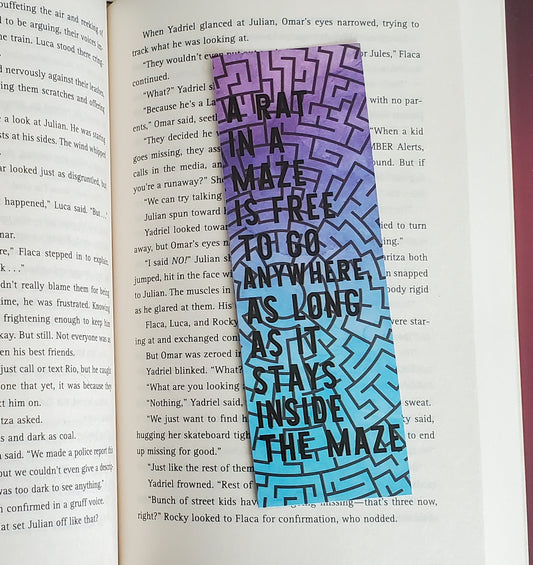 buffeting the air and
to be arguing, their voices
train. Luca stood there
nervously against their leashes,
them scratches and offering
a look at Julian. He was starting
at his sides. The wind whipped
looked just as disgruntled, but
happened," Luca said. "But . . ."
mar.
Flaca stepped in to explain.
. . ."
didn't really blame them for being
time, he was frustrated. Knowing
frightening enough to keep him
okay. But still. Not everyone was in
his best friends.
just call or text Rio, but he
one that yet, it was because they
t him on.
itza asked.
s and dark as coal.
n said. "We made a police report
but we couldn't even give a
was too dark to see anything."
onfirmed in a gruff voice.
at set Julian off like that?
When Yadriel glanced at Julian, Omar's eyes narrowed, trying to
track what he was looking at.
"They wouldn't even put out for Jules," Flaca
continued.
"What?" Yadriel
"Because he's a with no par-
ents," Omar said,
"They decided he "When a kid
goes missing, they Alerts,
calls in the media, and But if
you're a runaway?"
"We can try talking
Julian spun toward
Yadriel looked toward to turn
away, but Omar's eyes
"I said NO!" Julian aritza both
jumped, hit in the face snapped
to Julian. The muscles in body rigid
as he glared at them. His
Flaca, Luca, and Rocky
ing at and exchanged
But Omar was zeroed in
Yadriel blinked. "What?"
"What are you looking
"Nothing," Yadriel said, sweat.
"We just want to find said,
hugging her skateboard to end
up missing for good."
"Just like the rest of them
Yadriel frowned. "Rest of
"Bunch of street kids have missing—that's three now,
right?" Rocky looked to Flaca for confirmation, who nodded.
A RAT
IN A
MAZE
IS FREE
TO GO
ANYWHERE,
AS LONG
AS IT
STAYS
INSIDE
THE MAZE